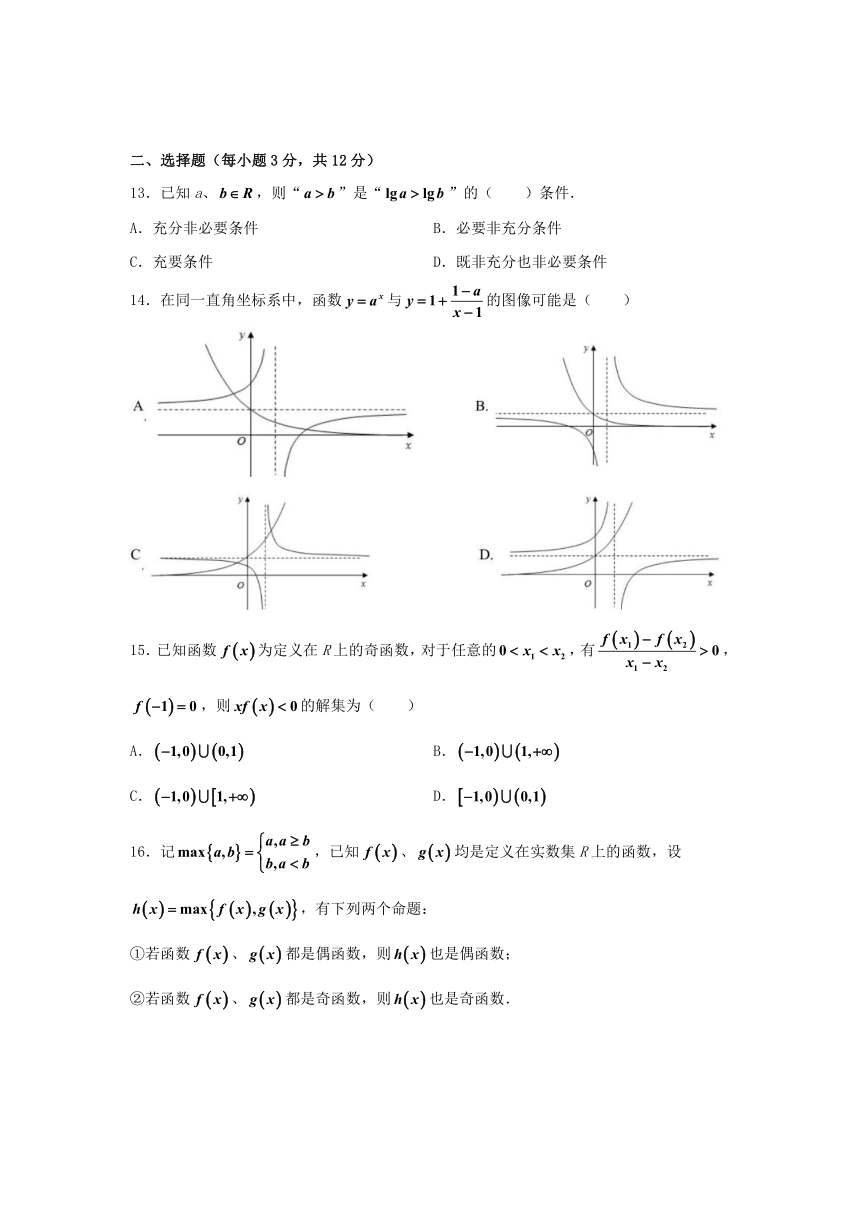 二、选择题（每小题3分，共12分）
13．已知a、b∈R，则“a＞b”是“lg a＞lg b”的（　　）条件．
A．充分非必要条件　　B．必要非充分条件
C．充要条件　　D．既非充分也非必要条件
14．在同一直角坐标系中，函数 y=a^x 与 y=1+\frac{1-a}{x-1} 的图像可能是（　　）
A． y O x
B. y O x
C． y O x
D. y O x
15．已知函数 f(x) 为定义在R上的奇函数，对于任意的 0<x₁<x₂，有 \frac{f(x₁)-f(x₂)}{x₁-x₂}>0，
f(-1)=0，则 xf(x)<0 的解集为（　　）
A．(-1,0)∪(0,1)　　B．(-1,0)∪(1,+∞)
C．(-1,0)∪[1,+∞)　　D．[-1,0)∪(0,1)
16．记 max{a,b}={a,a≥b b,a<b，已知 f(x)、g(x) 均是定义在实数集R上的函数，设
h(x)=max{f(x),g(x)}，有下列两个命题：
①若函数 f(x)、g(x) 都是偶函数，则 h(x) 也是偶函数；
②若函数 f(x)、g(x) 都是奇函数，则 h(x) 也是奇函数．